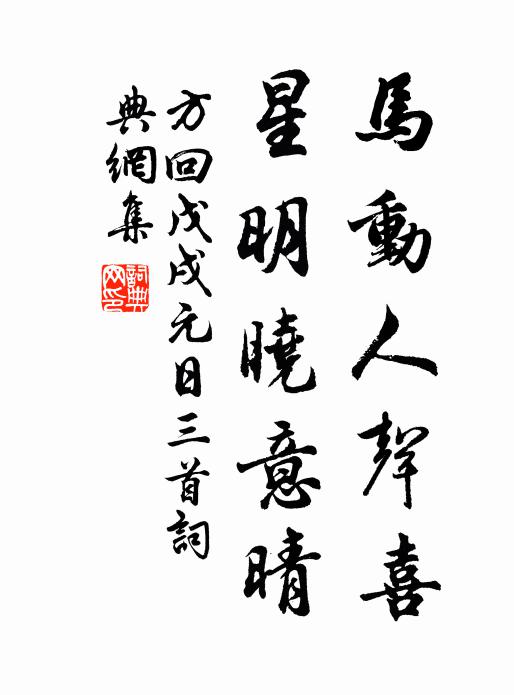 馬動人聲喜
星明曉意晴
方回戊戌元日三首詞
典網集
詞典網印